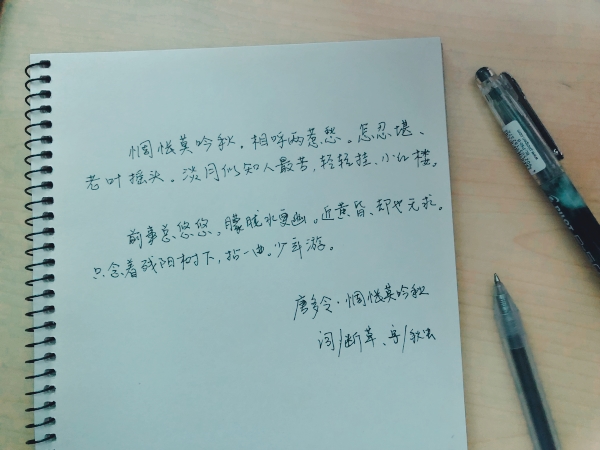 惆怅莫吟秋。相呼两惹愁。怎忍堪、
老叶摇头。淡月似知人最苦,轻轻挂、小红楼。
前事总悠悠。朦胧水更幽。近黄昏、却也无求。
只念着残阳树下,拈一曲。少年游。
唐多令·惆怅莫吟秋
词/断草、字/秋虫
PILOT